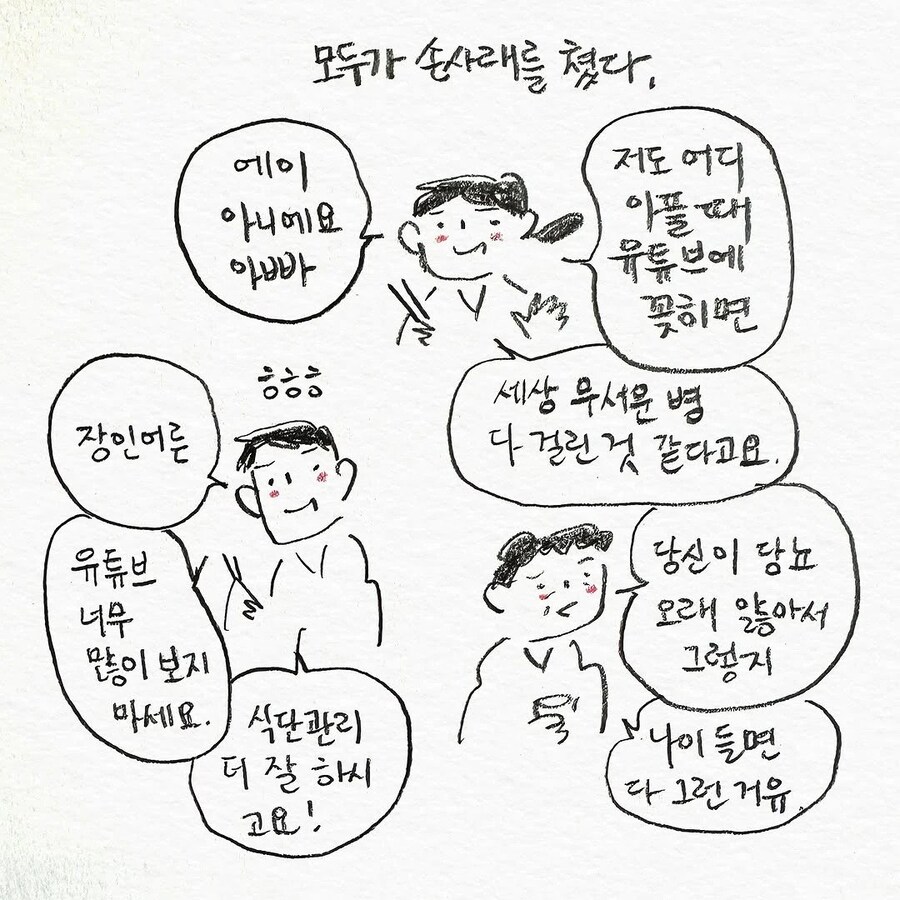 모두가 손사래를 쳤다.
에이
아니에요
아빠
저도 어디
아플 때
유튜브에
꽂히면
세상 무서운 병
다 걸린 것 같다고요.
ㅎㅎㅎ
장인어른
유튜브
너무
많이 보지
마세요.
식단관리
더 잘 하시
고요!
당신이 당뇨
오래 앓아서
그렇지
나이 들면
다 그런 거유.